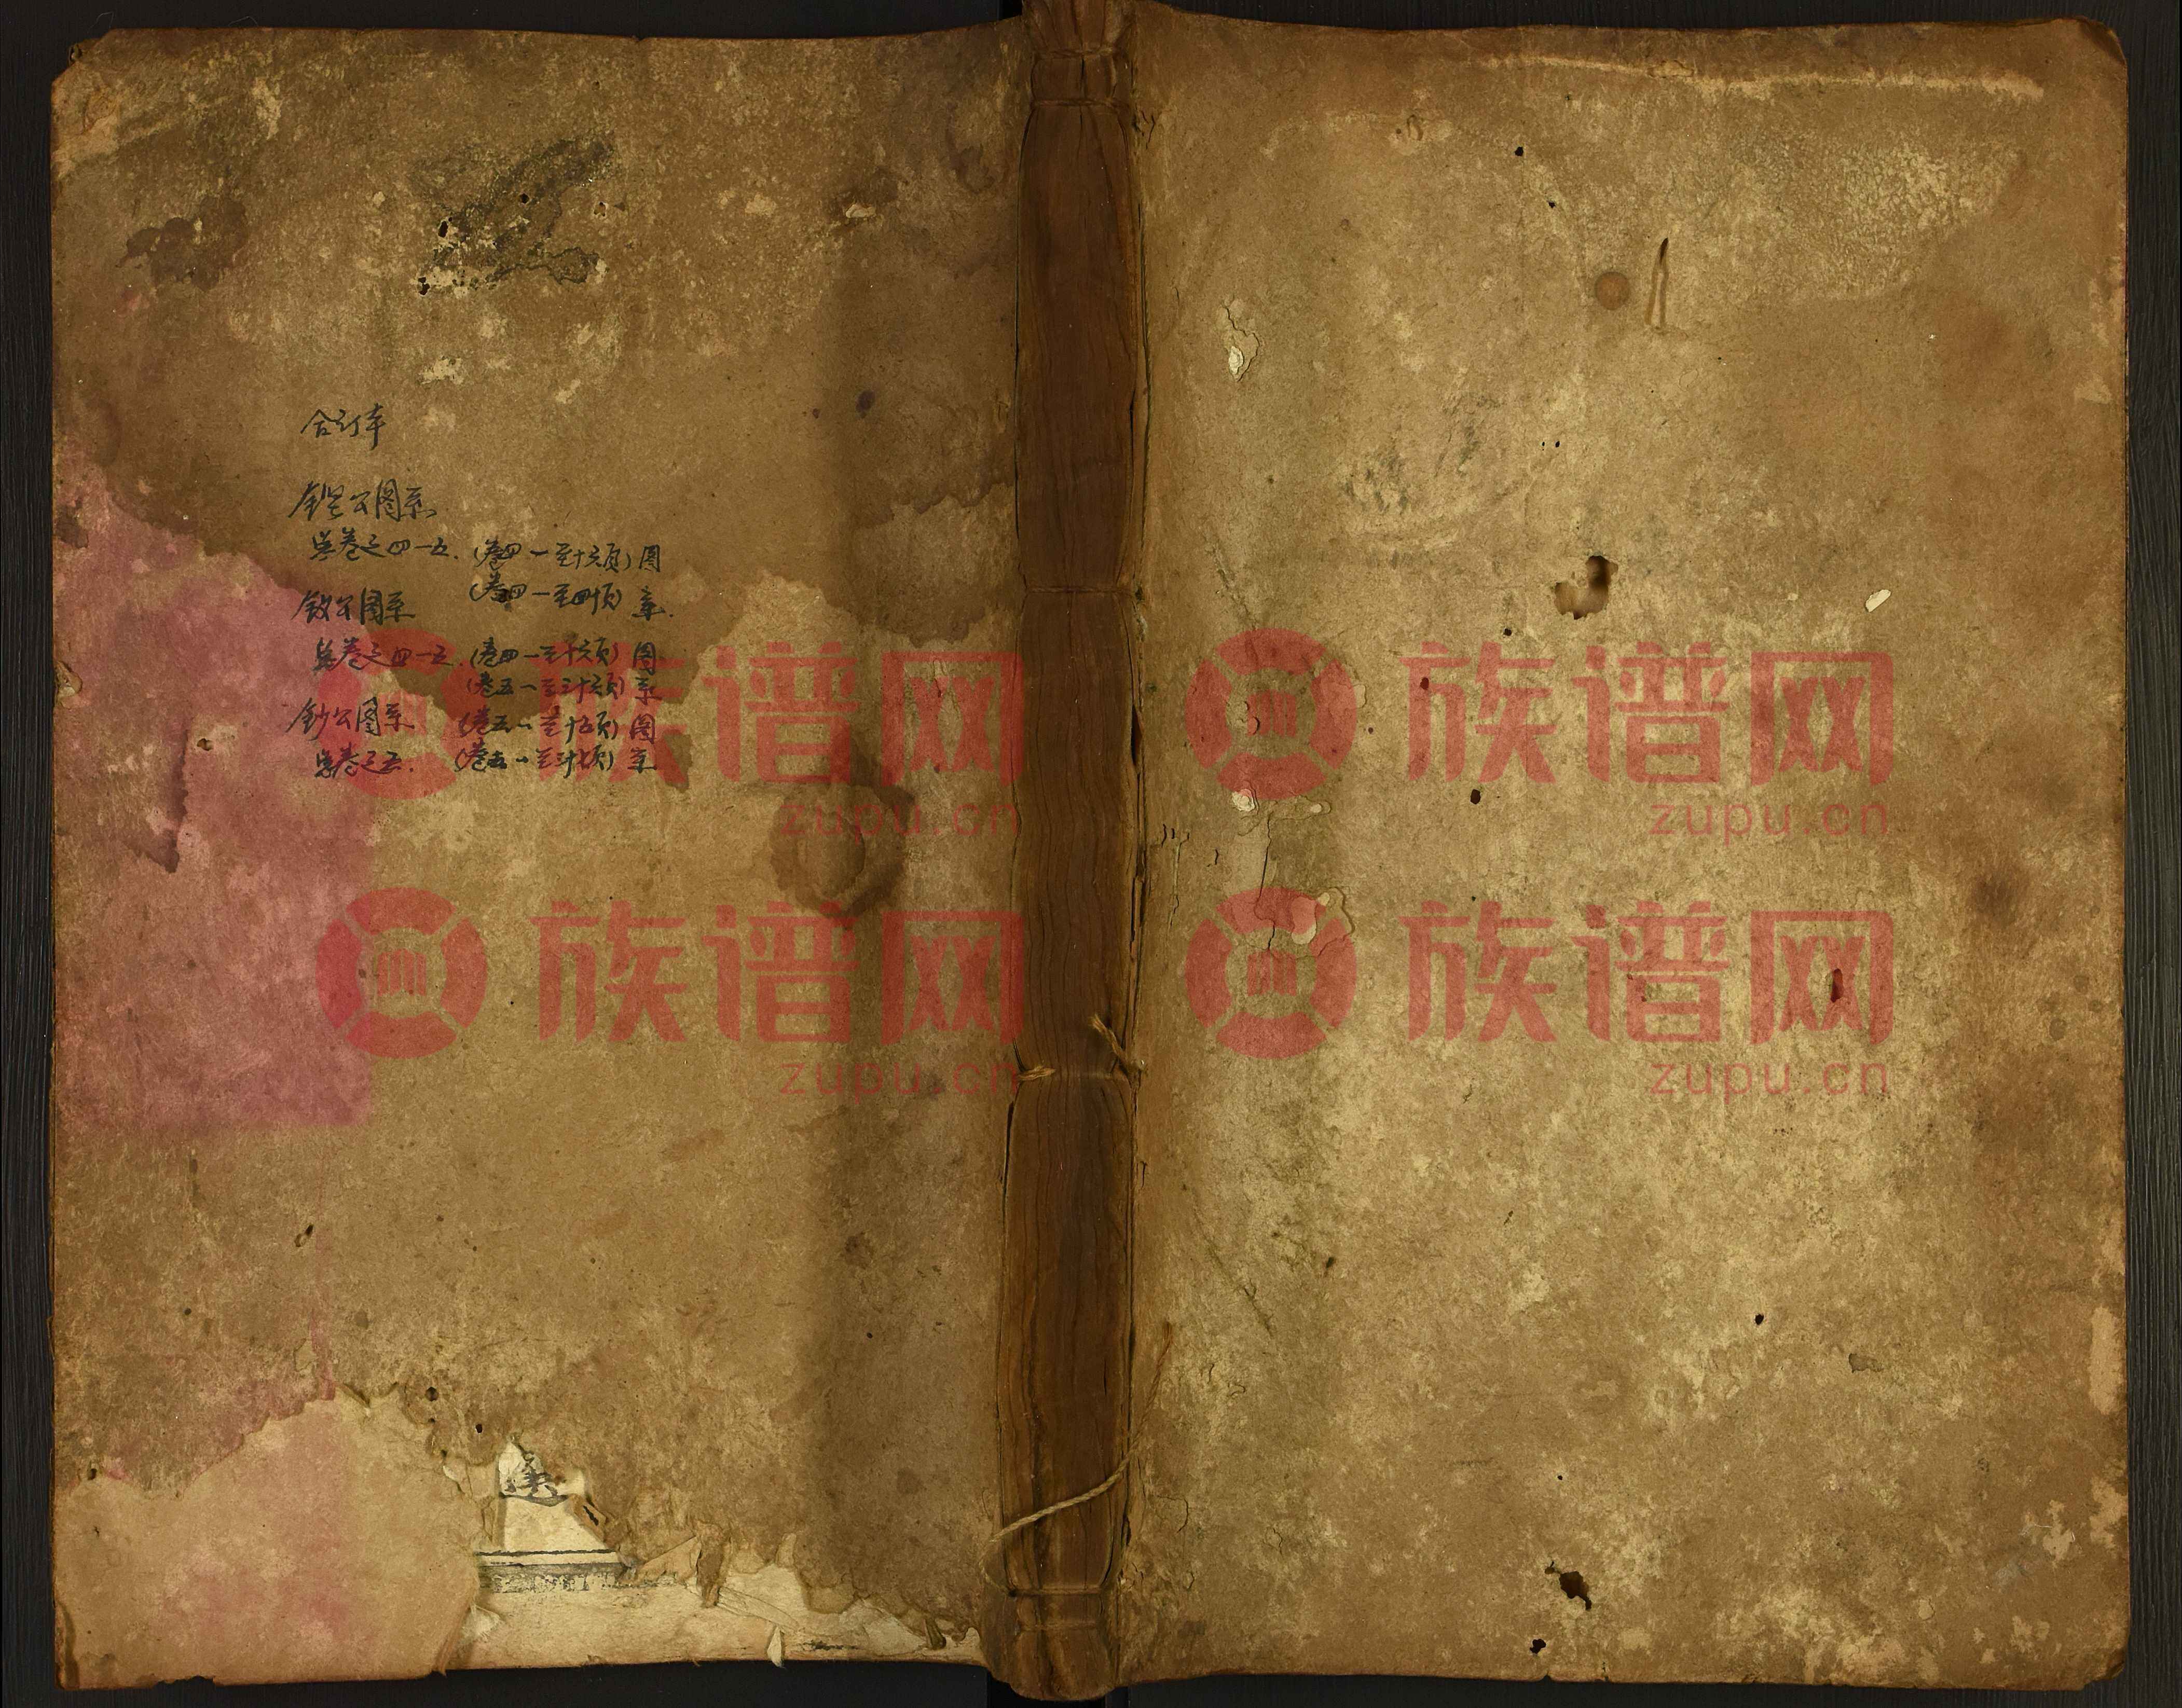 合订本
鋥公图系
总卷之四一五. (卷四一至十六页) 图
(卷四一至四十页) 系.
钦公图系
总卷之四一五. (卷四一至十六页) 图
(卷五一至三十六页) 系
钞公图系 (卷五一至十五页) 图
总卷之五. (卷五一至三十七页) 系
族谱网 族谱网
zupu.cn zupu.cn
族谱网 族谱网
zupu.cn zupu.cn